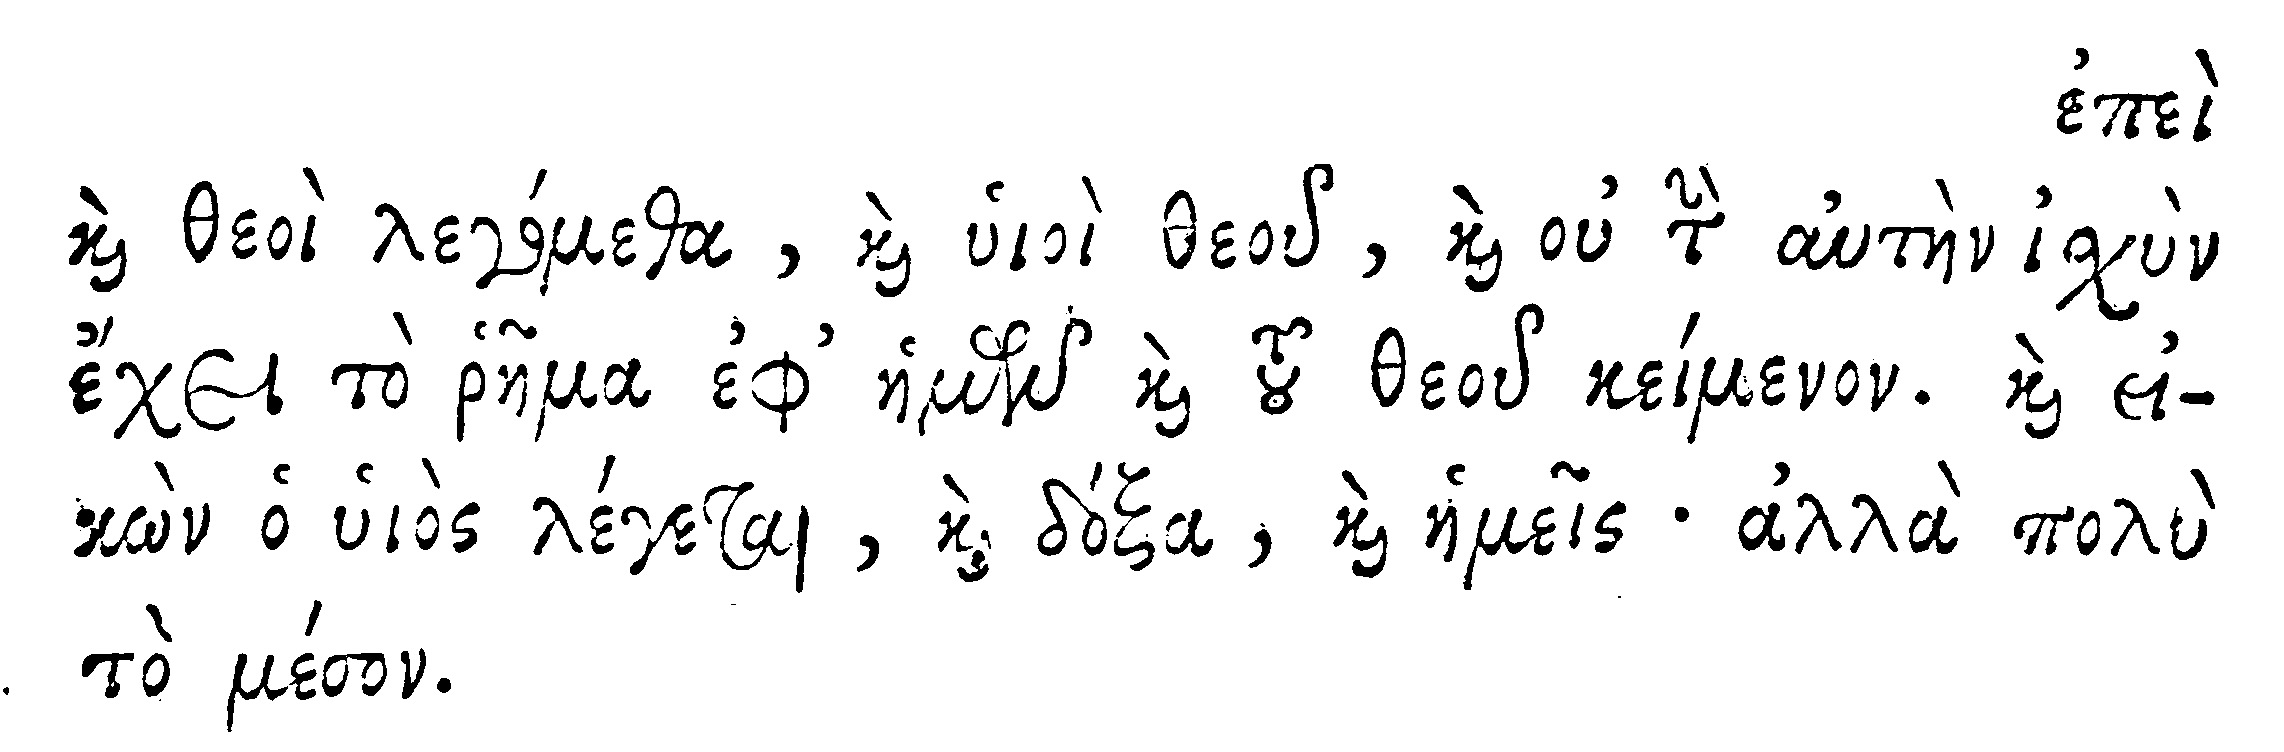 ἐπεὶ
καὶ θεοὶ λεγόμεθα, καὶ υἱοὶ θεοῦ, καὶ οὐ τὴν αὐτὴν ἰσχὺν
ἔχει τὸ ῥῆμα ἐφ’ ἡμῶν καὶ τοῦ θεοῦ κείμενον. καὶ εἰ-
κὼν ὁ υἱὸς λέγεται, καὶ δόξα, καὶ ἡμεῖς· ἀλλὰ πολὺ
τὸ μέσον.